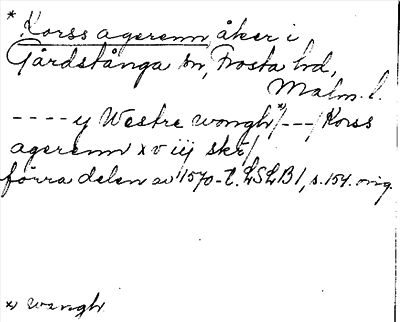 * Korss agerenn, åker i
Gårdstånga sn, Frosta hd,
Malm. l.
---- y Westre wongh x) /---/ Korss
agerenn xv iij skr /
förra delen av 1570-t. LSLB 1, s. 154. orig.
x) wangh